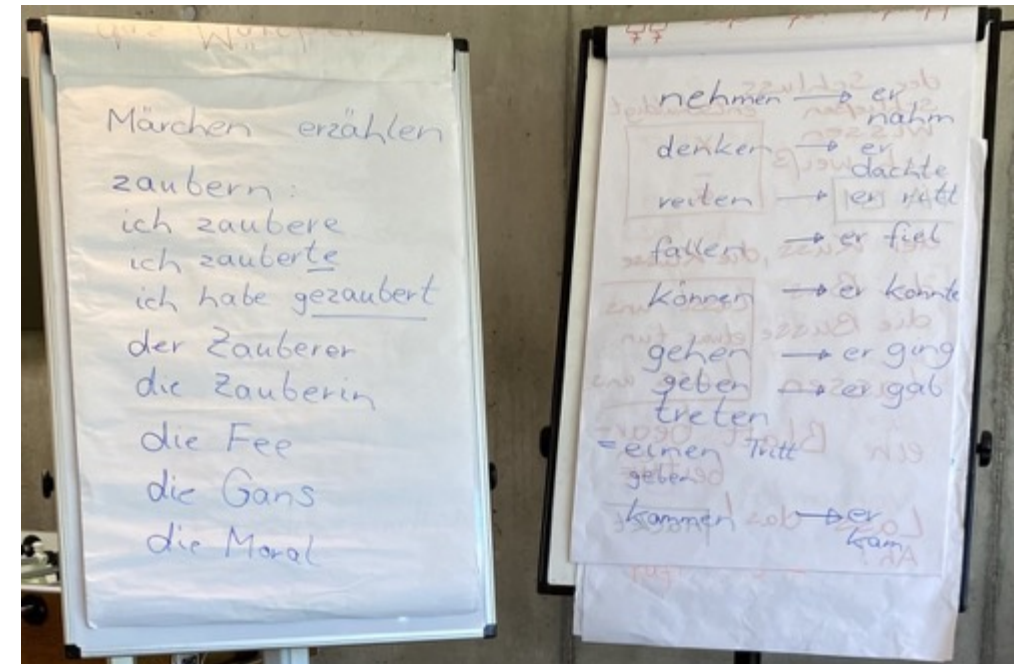 Märchen erzählen
zaubern:
ich zaubere
ich zauberte
ich habe gezaubert
der Zauberer
die Zauberin
die Fee
die Gans
die Moral
nehmen → er
nahm
denken → er
dachte
reiten → er ritt
fallen → er fiel
können → er konnte
gehen → er ging
geben → er gab
treten
= einen Tritt
geben
kommen → er
kam